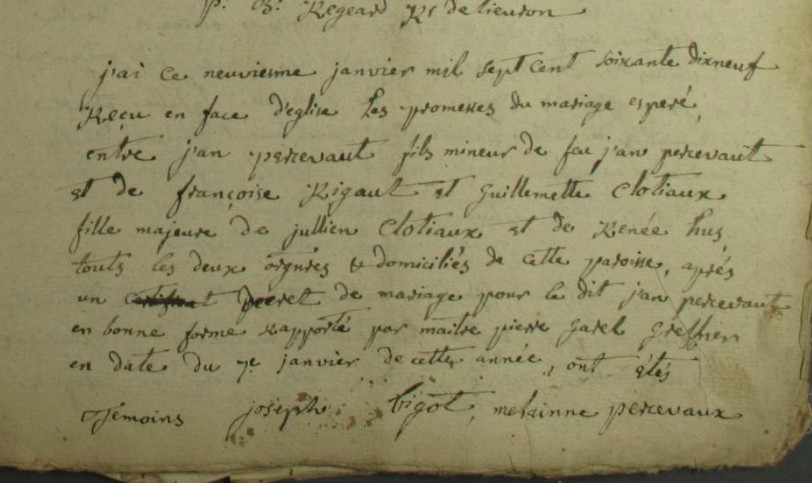 p. G. Regeard Rr de lieuron
j'ai ce neuviesme janvier mil sept cent soixante dixneuf
Reçu en face d'eglise les promesses du mariage esperé
entre jan percevaut fils mineur de feu jan percevaut
et de françoise Rigaut et Guillemette Clotiaux
fille majeure de jullien Clotiaux et de Renée hus
touts les deux orgnres & domiciliés de cette paroisse, aprés
un decret de mariage pour le dit jan percevaut
en bonne forme rapporté par maitre pierre Garel Greffier
en date du 7e janvier de cette année, ont étés
Temoins joseph bigot, percevaux